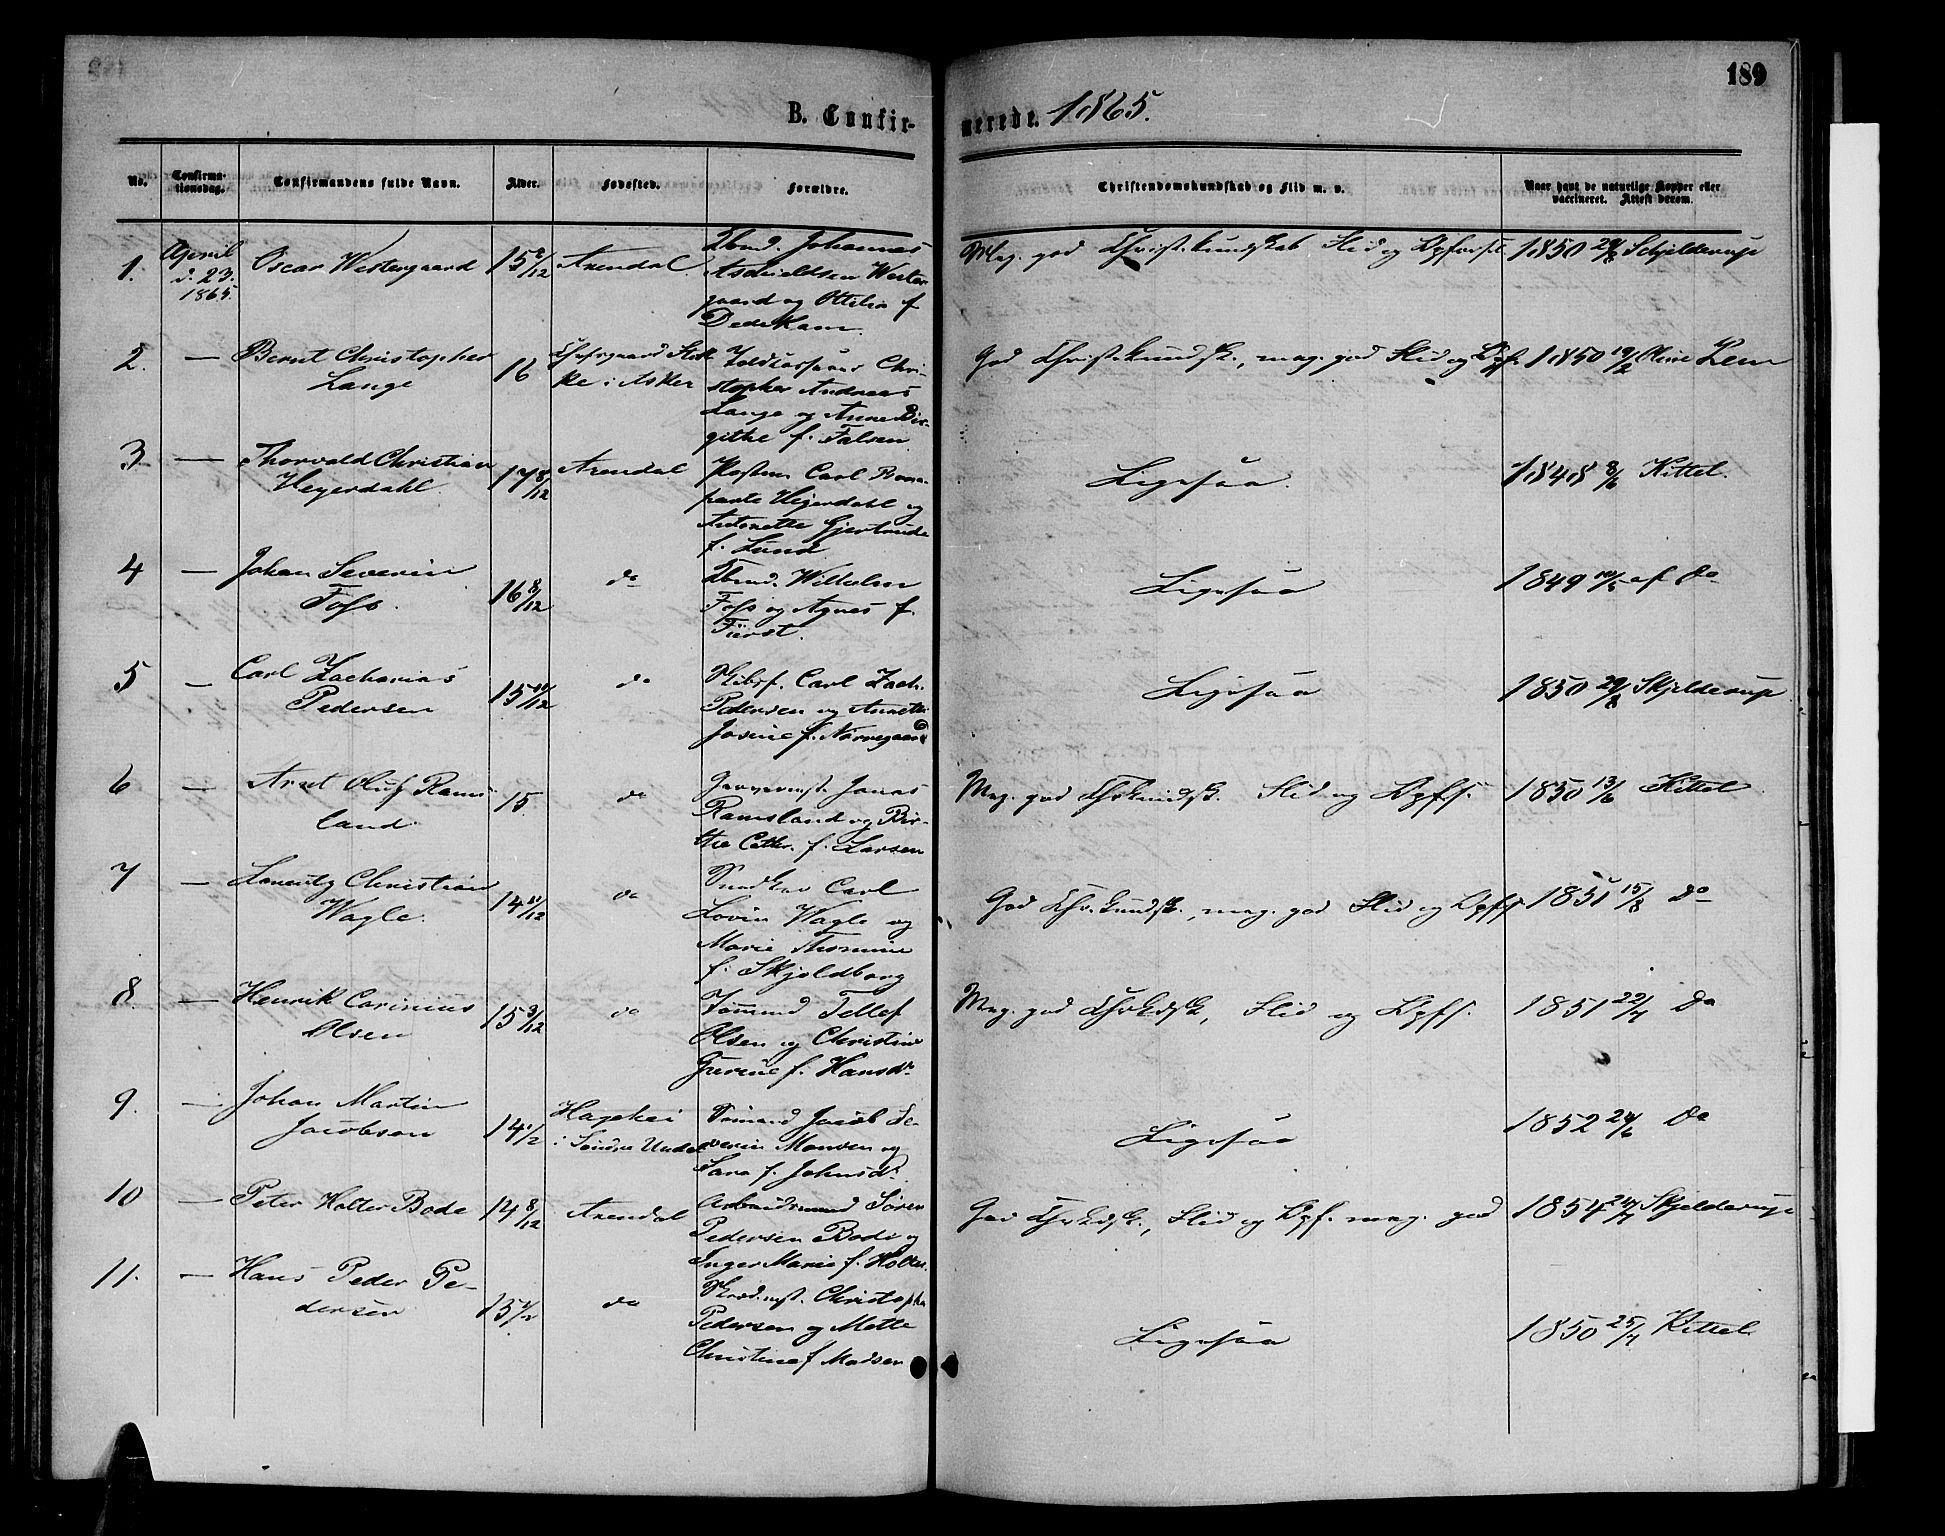 189
B. Confir-
merede. 1865.
No.
Confirma-
tionsdag.
Confirmandens fulde Navn.
Alder.
Fødested.
Forældre.
Christendomskundskab og Flid m. v.
Naar havt de naturlige Kopper eller
vaccineret. Attest derom.
1.
April
d. 23.
1865.
Oscar Westergaard
15 2/12
Arendal
Johannes
Wester-
gaard og Ottilia f.
Dedekam
Meg. god Christ.kundskab Flid og Opførsl.
1850 29/8 Schjelderup
2.
—
Bernt Christopher
Lange
16
i Asker
Chri-
stopher Andreas
Lange og Anne Bir-
githe f. Falsen
God Christ.kundsk., meg. god Flid og Opf.
1850 19/2
3
—
Thorvald Christian
Heyerdahl
17 8/12
Arendal
Carl Bona-
parte Heyerdahl og
Antonette Gjertrude
f. Lund
Ligesaa
1848 8/6 Kittel.
4
—
Johan Severin
Foss.
16 8/12
do
Wilhelm
Foss og Agnes f.
Fürst.
Ligesaa
1849 af do
5
—
Carl Zacharias
Pedersen
15 10/12
do
Skibsf. Carl Zach.
Pedersen og Annette
Josine f. Norregaard
Ligesaa
1850 29/8 Skjelderup
6
—
Arnt Oluf Rams
land
15
do
Garvermst. Jonas
Ramsland og Bir-
the Cathr. f. Larsen
Meg. god Chr.kundsk. Flid og Opfs.
1850 13/6 Kittel
7
—
Lauritz Christian
Wagle.
14 11/12
do
Snedker Carl
Lovin Wagle og
Marie Thomine
f. Skjoldborg
God Chr.kundsk., meg. god Flid og Opfs.
1851 15/8 do
8.
—
Henrik Carinius
Olsen
15 3/12
do
Tømmmd Tellef
Olsen og Christine
Gurine f. Hansdr
Meg. god Chr.kdsk, Flid og Opfs.
1851 22/7 do
9.
—
Johan Martin
Jacobsen
14 1/2
i Søndre Undal
Sømand Jacob Se-
verin Monsen og
Sara f. Johnsdr
Ligesaa
1852 24/6 do
10
—
Peter Holter Bode
14 8/12
Arendal
Arbeidsmand Søren
Pedersen Bode og
Inger Marie f. Holter.
God Chr.kdsk., Flid og Opf. meg. god
1854 24/7 Skjelderup
11.
—
Hans Peder Pe-
dersen
15 1/2
do
Skrædmst. Christopher
Pedersen og Mette
Christine f Madsen
Ligesaa
1850 25/7 Kittel